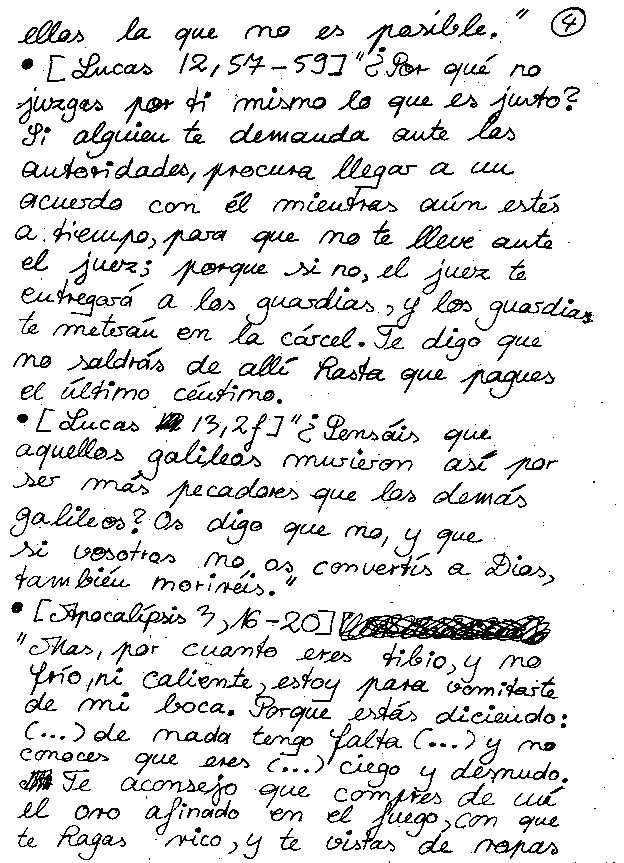 ellos la que no es posible." ④
• [Lucas 12,57-59] "¿Por qué no
juzgas por ti mismo lo que es justo?
Si alguien te demanda ante las
autoridades, procura llegar a un
acuerdo con él mientras aún estés
a tiempo, para que no te lleve ante
el juez; porque si no, el juez te
entregará a los guardias, y los guardias
te meterán en la cárcel. Te digo que
no saldrás de allí hasta que pagues
el último céntimo.
• [Lucas 13,2f] "¿Pensáis que
aquellos galileos murieron así por
ser más pecadores que los demás
galileos? Os digo que no, y que
si vosotros no os convertís a Dios,
también moriréis."
• [Apocalípsis 3,16-20]
"Mas, por cuanto eres tibio, y no
frío, ni caliente, estoy para vomitarte
de mi boca. Porque estás diciendo:
(...) de nada tengo falta (...) y no
conoces que eres (...) ciego y desnudo.
Te aconsejo que compres de mí
el oro afinado en el fuego, con que
te hagas rico, y te vistas de ropas